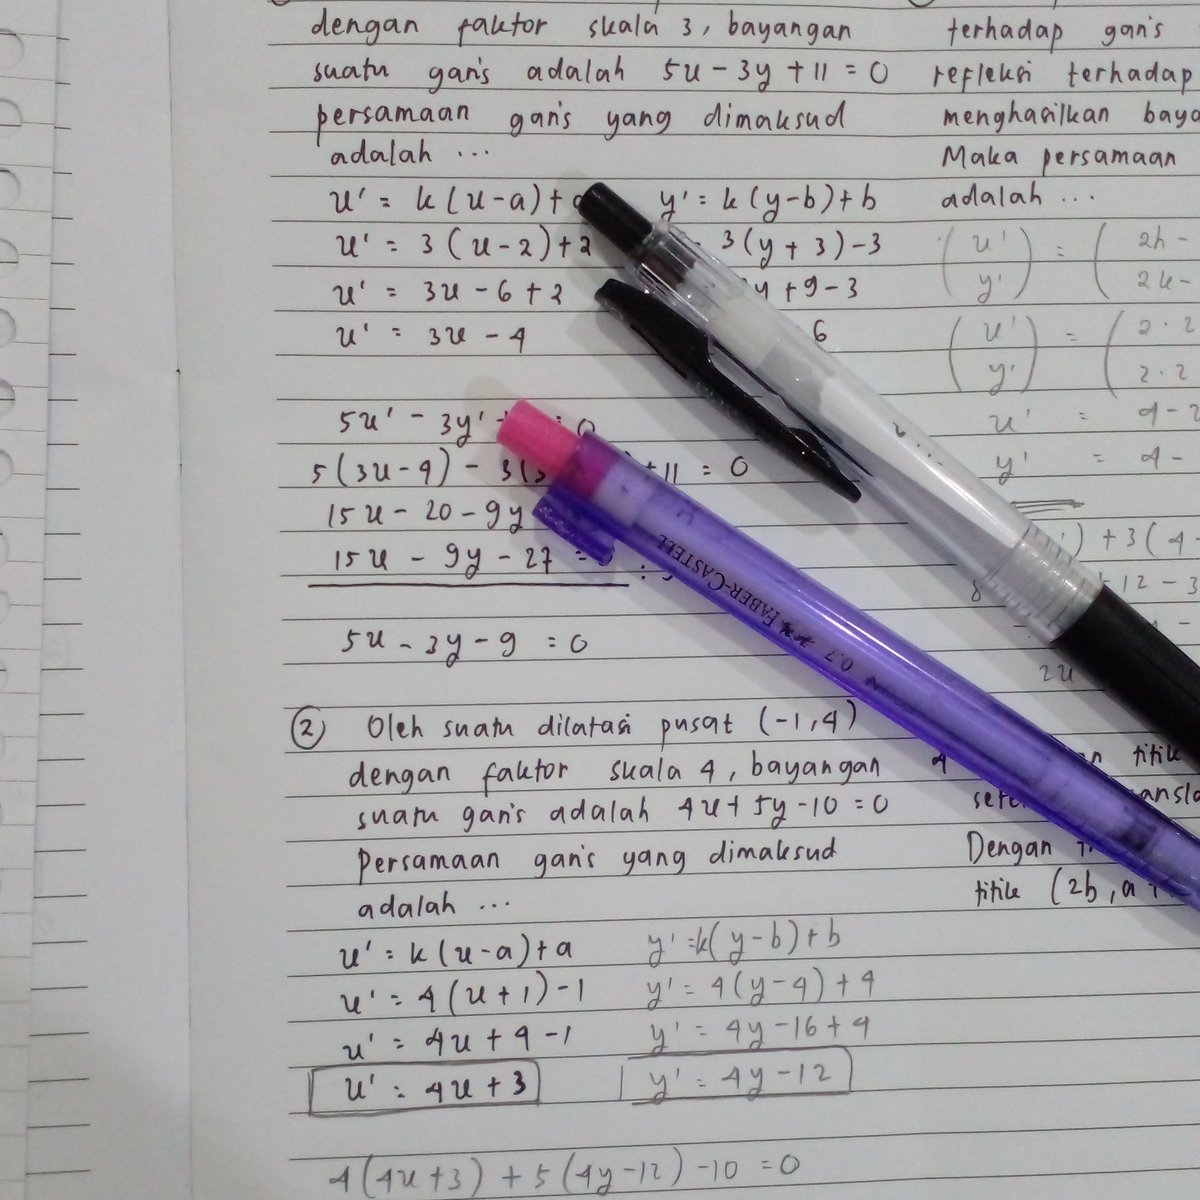 dengan faktor skala 3, bayangan
suatu garis adalah 5x - 3y + 11 = 0
persamaan garis yang dimaksud
adalah ...
x' = k(x-a)+a y' = k(y-b)+b
x' = 3(x-2)+2 3(y+3)-3
x' = 3x - 6 + 2 y + 9 - 3
x' = 3x - 4 6
5x' - 3y' + = 0
5(3x-4) - 3(3 +11 = 0
15x - 20 - 9y
15x - 9y - 27 =
5x - 3y - 9 = 0
② Oleh suatu dilatasi pusat (-1,4)
dengan faktor skala 4, bayangan
suatu garis adalah 4x + 5y - 10 = 0
persamaan garis yang dimaksud
adalah ...
x' = k(x-a)+a y' = k(y-b)+b
x' = 4(x+1)-1 y' = 4(y-4)+4
x' = 4x + 4 - 1 y' = 4y - 16 + 4
x' = 4x + 3 y' = 4y - 12
4(4x+3) + 5(4y-12) - 10 = 0
terhadap garis
refleksi terhadap
menghasilkan baya
Maka persamaan
adalah ...
(x') = (2h -
(y') (2k -
(x') = (2 . 2
(y') (2 . 2
x' = 4 - 2
y' = 4 -
) + 3(4 -
8 + 12 - 3
2x
4 titik
Dengan
titik (2b, a +
FABER-CASTELL 0.7